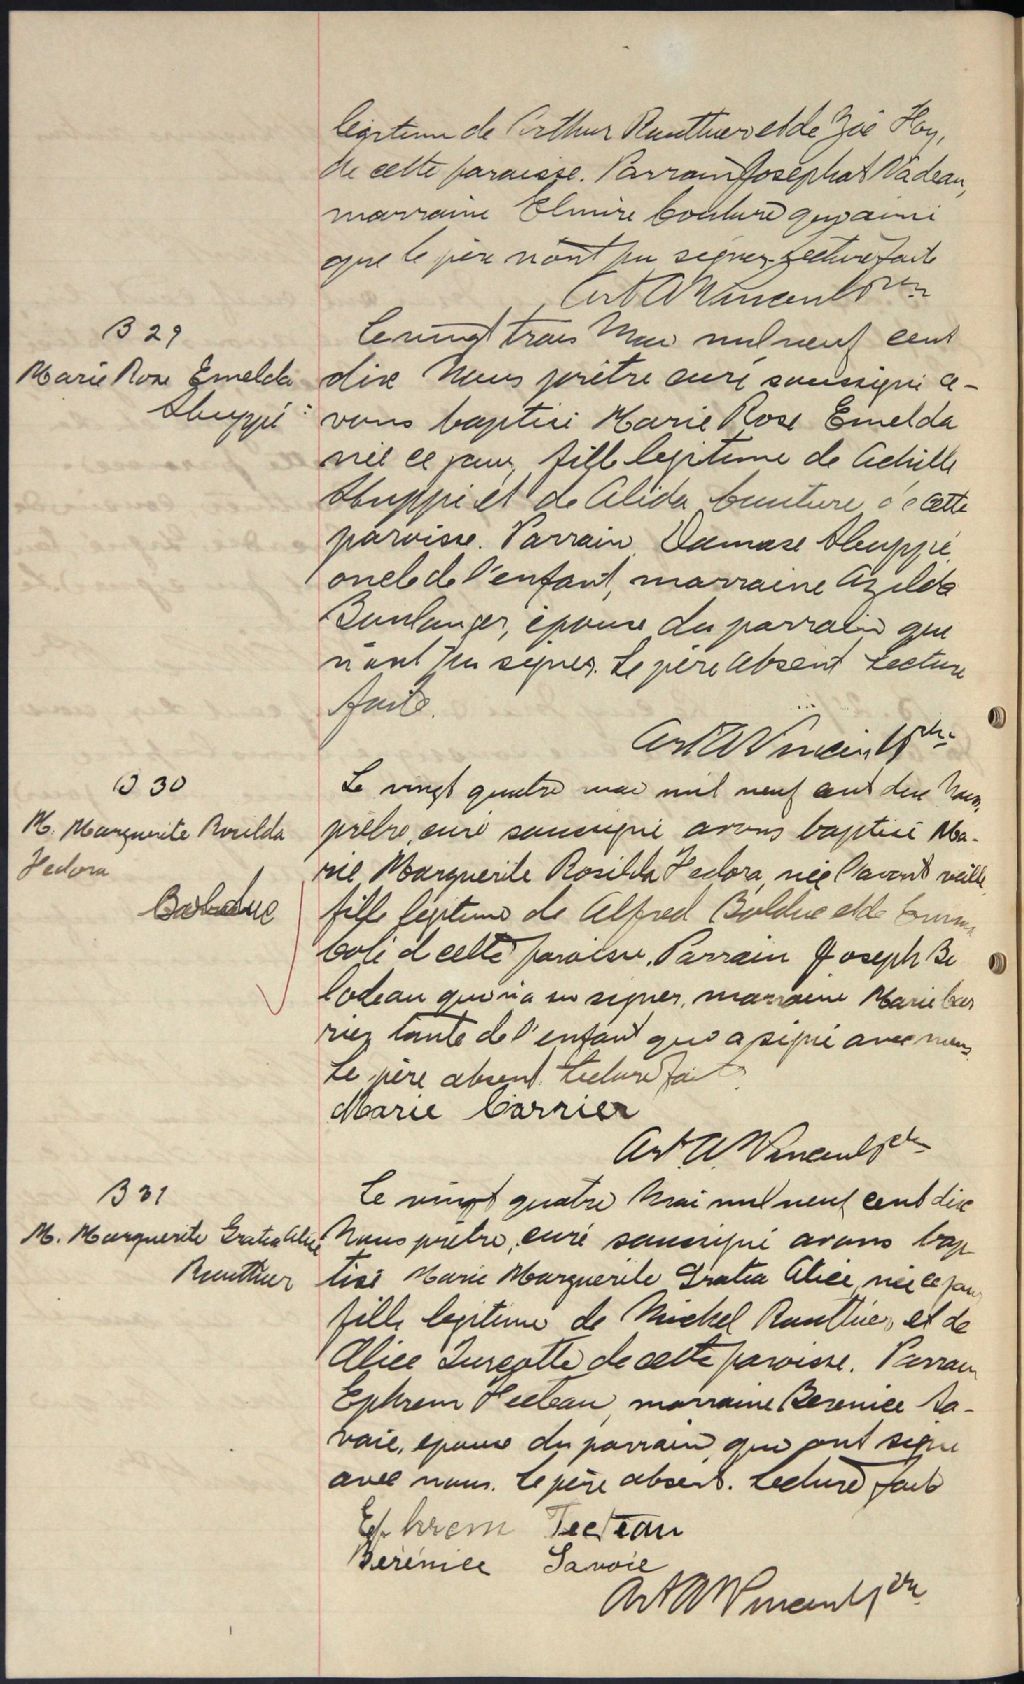 légitime de Arthur Routhier et de Zoé Hoy,
de cette paroisse. Parrain Josephat Nadeau,
marraine Elmire Couture qui ainsi
que le père n'ont pu signer. Lecture faite
Art A Vincent ptre
B 29
Marie Rose Emelda
Sheppé
Le vingt trois Mai mil neuf cent
dix Nous prêtre curé soussigné a-
vons baptisé Marie Rose Emelda
née ce jour, fille légitime de Achille
Sheppé et de Alida Couture de cette
paroisse. Parrain Damase Sheppé
oncle de l'enfant, marraine Azilda
Boulanger, épouse du parrain qui
n'ont pu signer. Le père absent Lecture
faite.
Art A Vincent ptre
B 30
M. Marguerite Rosilda
Fedora
Bolduc
Le vingt quatre mai mil neuf cent dix Nous,
prêtre, curé soussigné avons baptisé Ma-
rie Marguerite Rosilda Fedora, née l'avant veille,
fille légitime de Alfred Bolduc et de
Coté de cette paroisse. Parrain Joseph Bi
lodeau qui n'a su signer, marraine Marie Car
rier, tante de l'enfant qui a signé avec nous.
Le père absent. Lecture faite.
Marie Carrier
Art. A. Vincent ptre
B 31
M. Marguerite Gratia Alice
Routhier
Le vingt quatre Mai mil neuf cent dix
Nous prêtre, curé soussigné avons bap
tisé Marie Marguerite Gratia Alice, née ce jour
fille légitime de Michel Routhier, et de
Alice Turgotte de cette paroisse. Parrain
Ephrem Tecteau, marraine Berenice Sa-
voie, épouse du parrain qui ont signé
avec nous. Le père absent. Lecture faite
Ephrem Tecteau
Bérénice Savoie
Art A Vincent ptre